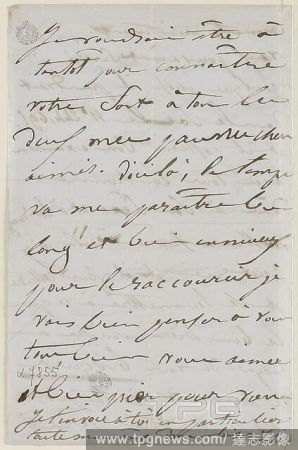 Je voudrais être à
tantôt pour connaître
votre sort à tous les
deux mes pauvres chers
aimés. d'ici là, le temps
va me paraître bien
long et bien ennuyeux
pour le raccourcir je
vais bien penser à vous
tous bien vous aimer
et bien prier pour vous
Je t'envoie à toi en particulier
toute
α 4855
PG
www.tpgnews.com | 達志影像